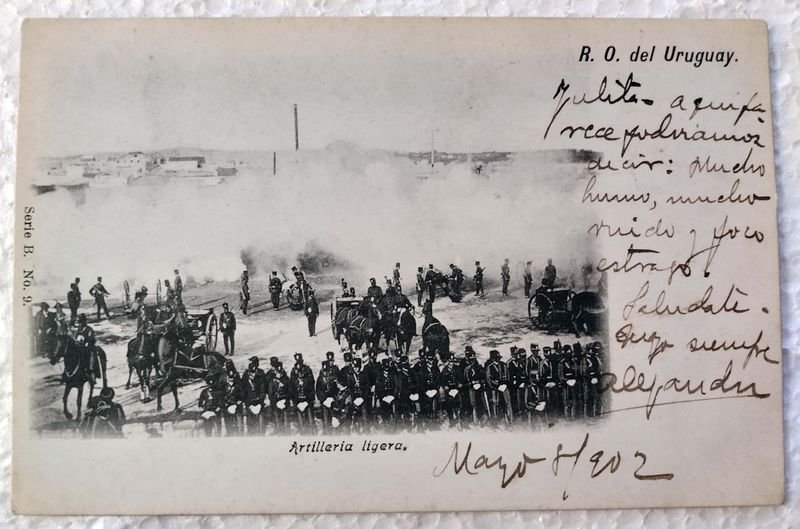 R. O. del Uruguay.
Julita - aqui pa
rece podriamos
decir: Mucho
humo, mucho
ruido y poco
estrago.
Saludate.
Suyo siempre
Alejandro
Serie B. No. 9.
Artilleria ligera.
Mayo 8/902